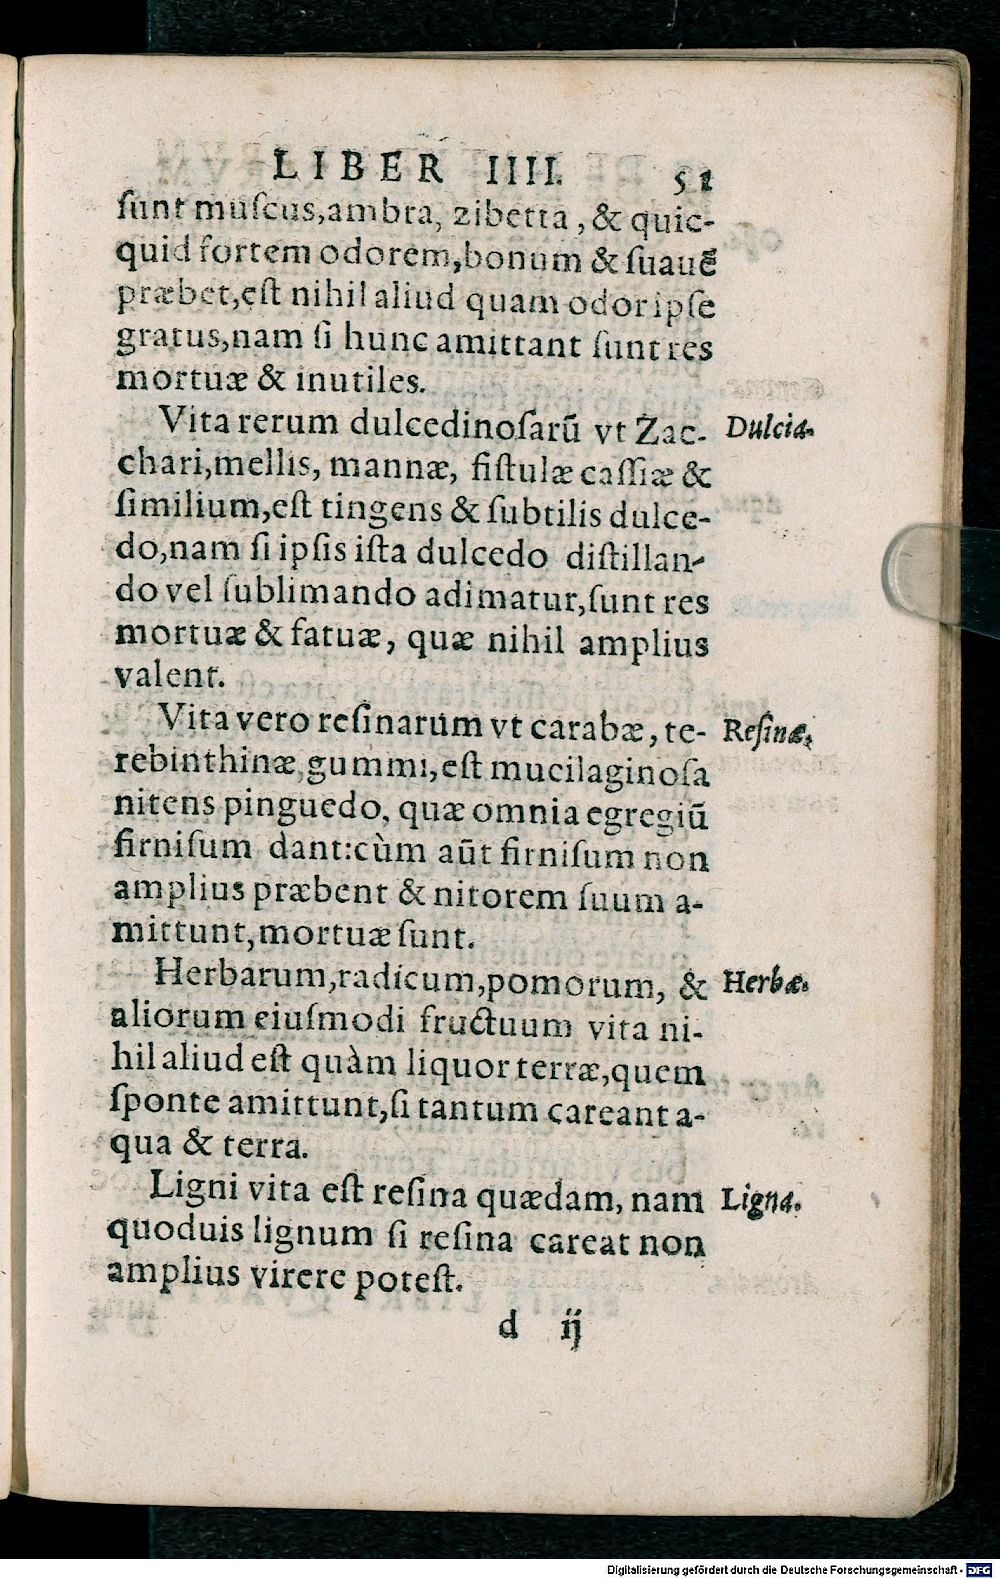 LIBER IIII. 51
ſunt muſcus,ambra, zibetta, & quic-
quid fortem odorem,bonum & ſuauē
præbet,eſt nihil aliud quam odor ipſe
gratus,nam ſi hunc amittant ſunt res
mortuæ & inutiles.
Vita rerum dulcedinoſarū vt Zac- Dulcia.
chari,mellis, mannæ, fiſtulæ caſſiæ &
ſimilium,eſt tingens & ſubtilis dulce-
do,nam ſi ipſis iſta dulcedo diſtillan-
do vel ſublimando adimatur,ſunt res
mortuæ & fatuæ, quæ nihil amplius
valent.
Vita vero reſinarum vt carabæ, te- Reſinæ.
rebinthinæ,gummi,eſt mucilaginoſa
nitens pinguedo, quæ omnia egregiū
firniſum dant:cùm aūt firniſum non
amplius præbent & nitorem ſuum a-
mittunt,mortuæ ſunt.
Herbarum,radicum,pomorum, & Herbæ.
aliorum eiuſmodi fructuum vita ni-
hil aliud eſt quàm liquor terræ,quem
ſponte amittunt,ſi tantum careant a-
qua & terra.
Ligni vita eſt reſina quædam, nam Ligna.
quoduis lignum ſi reſina careat non
amplius virere poteſt.
d ij
Digitalisierung gefördert durch die Deutsche Forschungsgemeinschaft - DFG